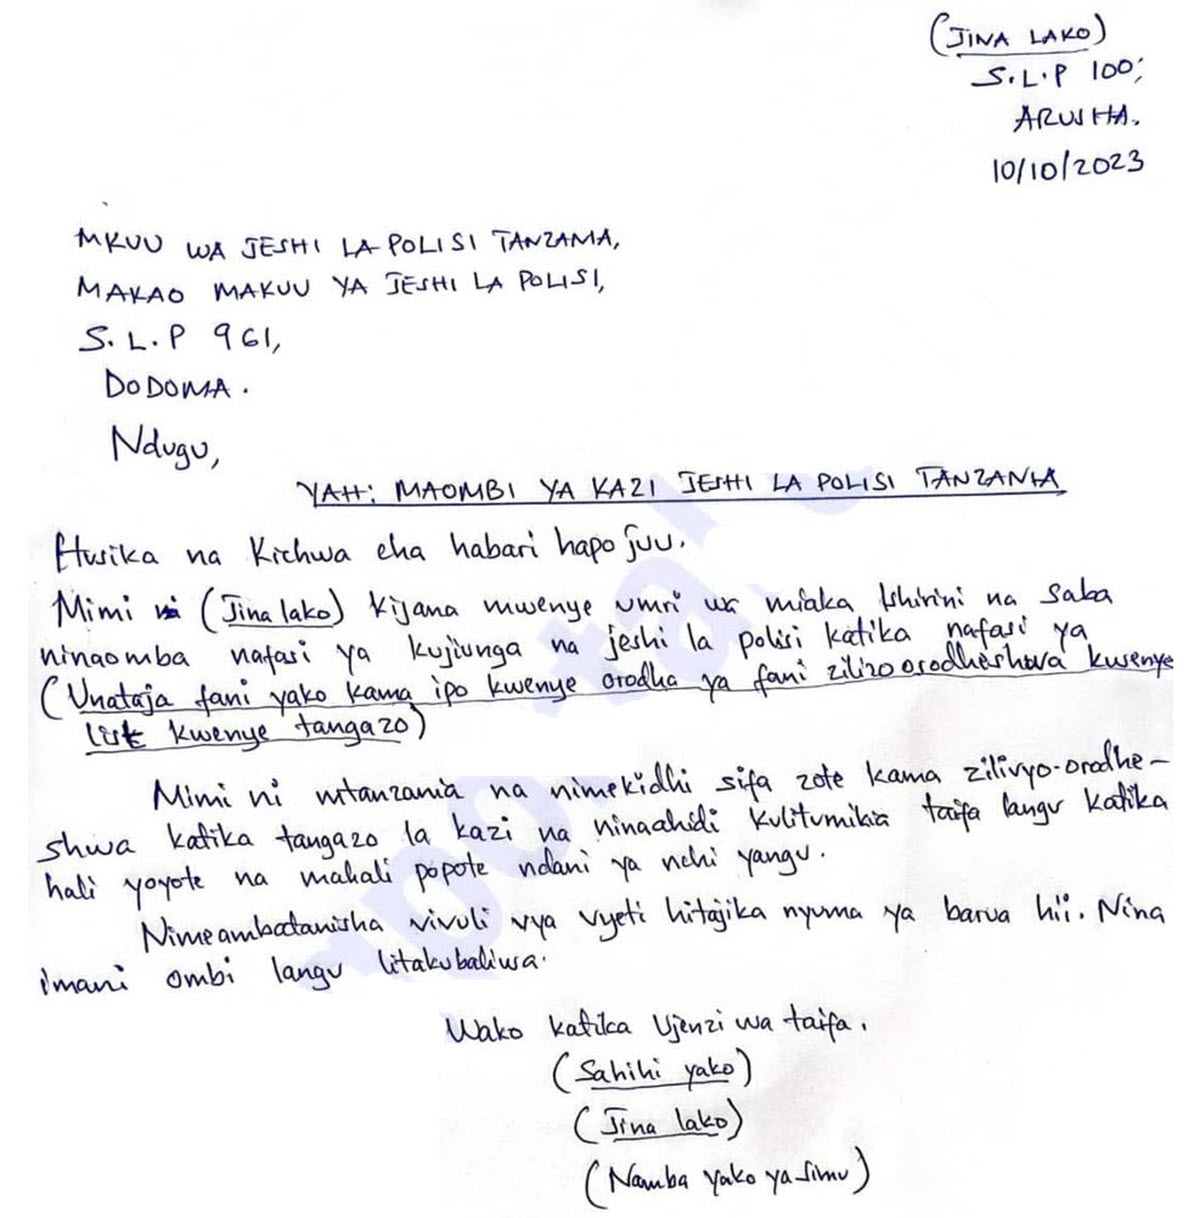 (JINA LAKO)
S.L.P 100,
ARUSHA.
10/10/2023
MKUU WA JESHI LA POLISI TANZANIA,
MAKAO MAKUU YA JESHI LA POLISI,
S.L.P 961,
DODOMA.
Ndugu,
YAH: MAOMBI YA KAZI JESHI LA POLISI TANZANIA
Husika na Kichwa cha habari hapo juu.
Mimi ni (Jina lako) kijana mwenye umri wa miaka Ishirini na Saba
ninaomba nafasi ya kujiunga na jeshi la polisi katika nafasi ya
(Unataja fani yako kama ipo kwenye orodha ya fani zilizoorodheshwa kwenye
list kwenye tangazo)
Mimi ni mtanzania na nimekidhi sifa zote kama zilivyo-orodhe-
shwa katika tangazo la kazi na ninaahidi kulitumikia taifa langu katika
hali yoyote na mahali popote ndani ya nchi yangu.
Nimeambatanisha vivuli vya vyeti hitajika nyuma ya barua hii. Nina
imani ombi langu litakubaliwa.
Wako katika Ujenzi wa taifa.
(Sahihi yako)
(Jina lako)
(Namba yako ya simu)